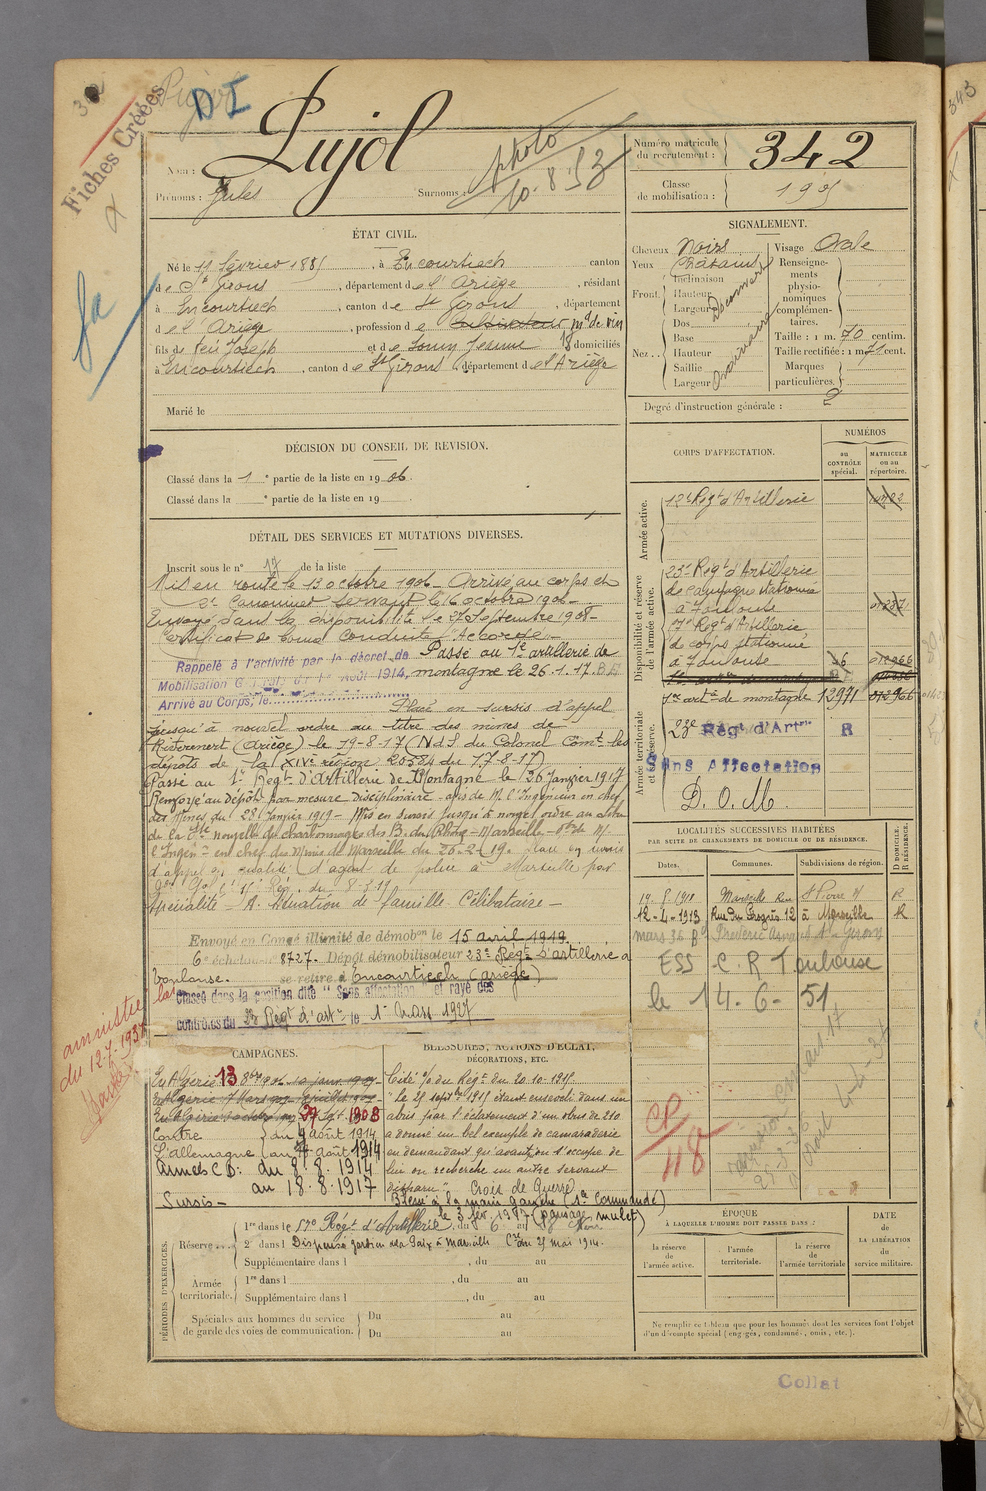 Fiches Créées
D I
Nom : Pujol
Prénoms : Jules Surnoms :
photo
10.8.53
Numéro matricule
du recrutement : 342
Classe
de mobilisation : 1905
ÉTAT CIVIL.
Né le 11 février 1885, à Encourtiech canton
de St Girons, département de l'Ariège, résidant
à Encourtiech, canton de St Girons, département
de l'Ariège, profession de Cultivateur md de vin
fils de feu Joseph et de Jeanne domiciliés
à Encourtiech, canton de St Girons, département de l'Ariège
Marié le
SIGNALEMENT.
Cheveux Noirs
Yeux Châtains
Front. Inclinaison
Hauteur
Largeur
Nez... Dos
Base
Hauteur
Saillie
Largeur
Ordinaire
Visage Ovale
Renseigne-
ments
physio-
nomiques
complémen-
taires.
Taille : 1 m. 70 centim.
Taille rectifiée : 1 m. 71 cent.
Marques
particulières.
Degré d'instruction générale : 2
DÉCISION DU CONSEIL DE REVISION.
Classé dans la 1e partie de la liste en 1906.
Classé dans la e partie de la liste en 19
DÉTAIL DES SERVICES ET MUTATIONS DIVERSES.
Inscrit sous le n° 17 de la liste
Mis en route le 13 octobre 1906 - Arrivé au corps et
2e Canonnier Servant le 16 octobre 1906 -
Envoyé dans la disponibilité le 27 Septembre 1908 -
Certificat de bonne Conduite "Accordé" -
Rappelé à l'activité par le décret de
Mobilisation Générale du 1er Août 1914,
Arrivé au Corps, le
Passé au 1er artillerie de
montagne le 26.1.17.
Placé en sursis d'appel
jusqu'à nouvel ordre au titre des mines de
Riverenert (Ariège) le 19-8-17 (Nd S du Colonel Comt les
dépôts de la XIVe région 20584 du 17-8-17)
Passé au 1er Regt d'Artillerie de Montagne le 26 Janvier 1917
Renvoyé au dépôt par mesure disciplinaire - avis de M. l'Ingénieur en chef
des Mines du 28 Janvier 1919 - Mis en sursis jusqu'à nouvel ordre au titre
de la Sté nouvelle de charbonnages des B. du Rhône - Marseille -
l'Ingenr en chef des Mines de Marseille du 26-2-19. Placé en sursis
d'appel en qualité d'agent de police à Marseille par
Spécialité - A. Situation de famille Célibataire -
Envoyé en Congé illimité de démobon le 15 avril 1919.
6e échelon n° 8727. Dépôt démobilisateur 23e Régt d'artillerie à
Toulouse. se retire à Encourtiech (Ariège)
Classé dans la position dite "Sans affectation" et rayé des
contrôles du 23 Régt d'artie le 1er Mars 1927
amnistié
du 12.7.1937
CORPS D'AFFECTATION.
NUMÉROS
au
CONTRÔLE
spécial.
MATRICULE
ou au
répertoire.
Armée active.
12e Regt d'Artillerie
Disponibilité et réserve
de l'armée active.
23e Regt d'Artillerie
de campagne stationné
à Toulouse
Regt d'Artillerie
de corps stationné
à Toulouse
1er artie de montagne 12971
Armée territoriale
et sa réserve.
23e Régt d'Artrie R
Sans Affectation
D. O. M.
LOCALITÉS SUCCESSIVES HABITÉES
PAR SUITE DE CHANGEMENTS DE DOMICILE OU DE RÉSIDENCE.
Dates.
Communes.
Subdivisions de région.
D DOMICILE.
R RÉSIDENCE.
Marseille Rue St Pierre R
12-4-1913 Rue du Progrès 12 à Marseille R
ESS - C. R Toulouse
le 14-6-51
CP/48
CAMPAGNES.
En Algérie 13 8bre 906 - 10 janv. 1907
En Algérie 7 Mars 907 - 8 juillet 1907
En Algérie 907 27 Sept. 1908
Contre du 4 août 1914
l'Allemagne au août 1914
Armées C D : du 8.8.1914
au 18.8.1917
Sursis -
BLESSURES, ACTIONS D'ÉCLAT,
DÉCORATIONS, ETC.
Cité o/ du Régt du 20-10-1915
"Le 25 septbre 1915 étant enseveli dans un
abris par l'éclatement d'un obus de 210
a donné un bel exemple de camaraderie
en demandant qu'avant qu'on s'occupe de
lui on recherche un autre servant
disparu". Croix de Guerre
Blessé à la main gauche (Sce Commandé)
le 3 fév. 1917 (pansage mulet)
PÉRIODES D'EXERCICES.
Réserve....
1re dans le Régt d'Artillerie, du 6 au
2e dans l Dispensé gardien de la Paix à Marseille Cre du 25 mai 1914.
Supplémentaire dans l , du au
Armée
territoriale.
1re dans l , du au
Supplémentaire dans l , du au
Spéciales aux hommes du service
de garde des voies de communication.
Du au
Du au
ÉPOQUE
À LAQUELLE L'HOMME DOIT PASSER DANS :
la réserve
de
l'armée active.
l'armée
territoriale.
la réserve
de
l'armée territoriale
DATE
de
LA LIBÉRATION
du
service militaire.
Ne remplir ce tableau que pour les hommes dont les services font l'objet
d'un décompte spécial (engagés, condamnés, omis, etc.).
Collat
343